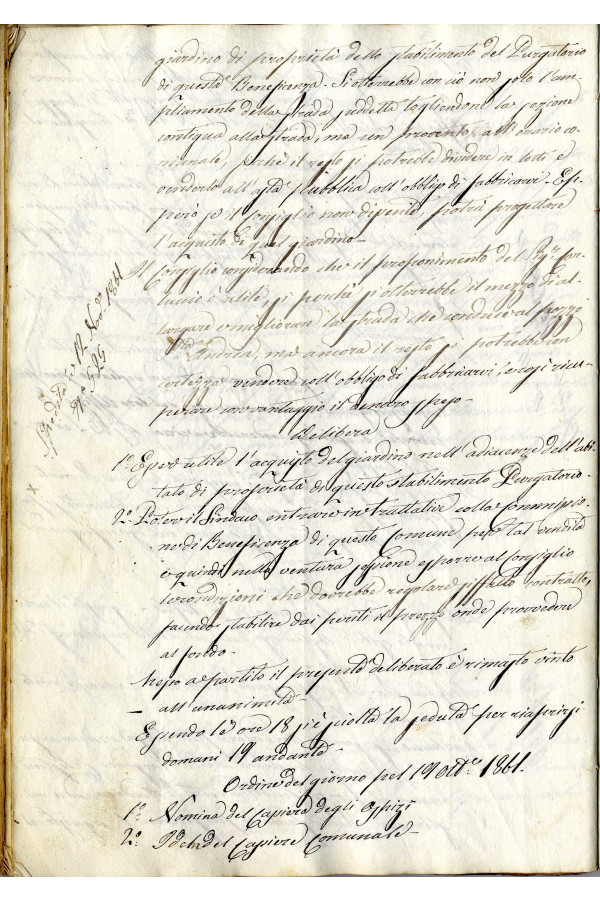 giardino di proprietà dello stabilimento del Purgatorio
di questa Beneficenza. Si otterrebbe con ciò non solo l'am-
pliamento della strada suddetta togliendone la porzione
contigua alla strada, ma un provento all'Erario co-
munale, perchè il resto si potrebbe dividere in lotti e
venderlo all'asta pubblica coll'obbligo di fabbricarvi. Es-
però se il Consiglio non dissente, potrà progettare
l'acquisto di quel giardino.
Il Consiglio considerando che il proponimento del Sig.r
è utile, sì perchè si otterrebbe il mezzo di al-
largare e migliorare la strada che conduce al pozzo
Andrea, ma ancora il resto si potrebbe con
certezza vendere coll'obbligo di fabbricarvi, e così ricu-
perare con vantaggio il denaro speso.
Delibera
1.° Esser utile l'acquisto del giardino nell'adiacenze dell'abi-
tato di proprietà di questo stabilimento Purgatorio.
2.° Poter il Sindaco entrare in trattative colla Commissio-
ne di Beneficenza di questo Comune per tal vendita
e quindi nella ventura sessione esporre al Consiglio
le condizioni che dovrebbe regolare siffatto contratto,
facendo stabilire dai periti il prezzo onde provvedere
al fondo.
Messo a partito il presente deliberato è rimasto vinto
all'unanimità.
Essendo le ore 18 si è sciolta la seduta per riaprirsi
domani 19 andante.
Ordine del giorno pel 19 Ott.e 1861.
1.° Nomina del Cassiere degli Ospizi
2.° Idem del Cassiere Comunale.
Spedita li 12 Nov.e 1861
N.° 525